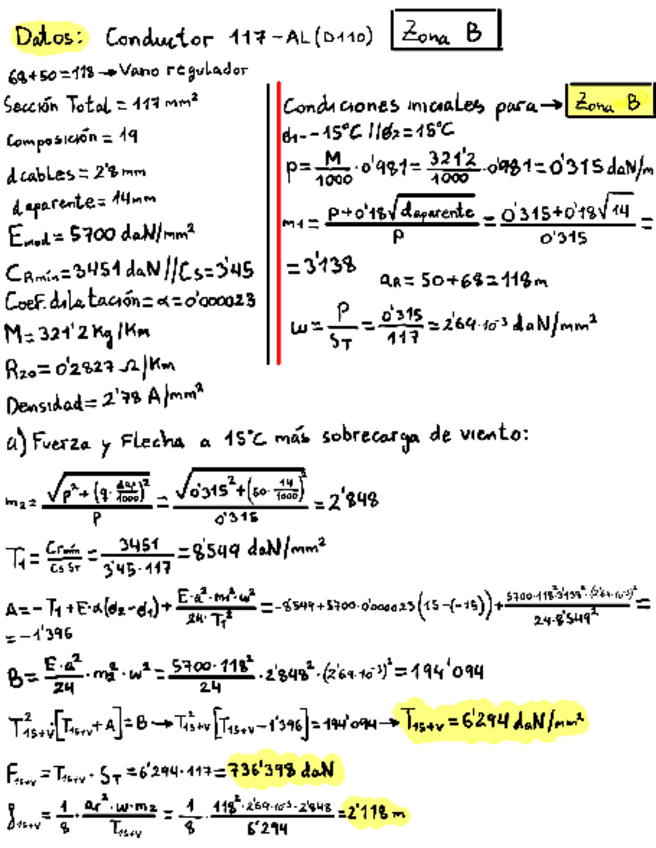 Datos: Conductor 117-AL(D110) Zona B
68+50=118→Vano regulador
Sección Total = 117 mm²
Composición = 19
d cables = 2'8 mm
d aparente = 14mm
Emod = 5700 daN/mm²
CRmin = 3451 daN//Cs=3'45
Coef. dilatación = α = 0'000023
M = 321'2 Kg/Km
R20 = 0'2827 Ω/Km
Densidad = 2'78 A/mm²
Condiciones iniciales para → Zona B
θ1 = -15°C // θ2 = 15°C
P = M/1000 · 0'981 = 321'2/1000 · 0'981 = 0'315 daN/m
m1 = P+0'18√daparente/P = 0'315+0'18√14/0'315 =
= 3'138
aR = 50+68 = 118m
ω = P/ST = 0'315/117 = 2'69·10⁻³ daN/mm²
a) Fuerza y Flecha a 15°C más sobrecarga de viento:
m2 = √P²+(q·dap/1000)²/P = √0'315²+(60·14/1000)²/0'315 = 2'848
T1 = Crmín/Cs ST = 3451/3'45·117 = 8'549 daN/mm²
A = -T1+E·α(θ2-θ1)+E·a²·m1²·ω²/24·T1² = -8'549+5700·0'000023(15-(-15))+5700·118²·3'138²·(2'69·10⁻³)²/24·8'549² =
= -1'396
B = E·a²/24 · m2² · ω² = 5700·118²/24 · 2'848² · (2'69·10⁻³)² = 194'094
T²15+V·[T15+V+A] = B → T²15+V[T15+V-1'396] = 194'094 → T15+V = 6'294 daN/mm²
F15+V = T15+V · ST = 6'294·117 = 736'398 daN
f15+V = 1/8 · ar²·ω·m2/T15+V = 1/8 · 118²·2'69·10⁻³·2'848/6'294 = 2'118 m